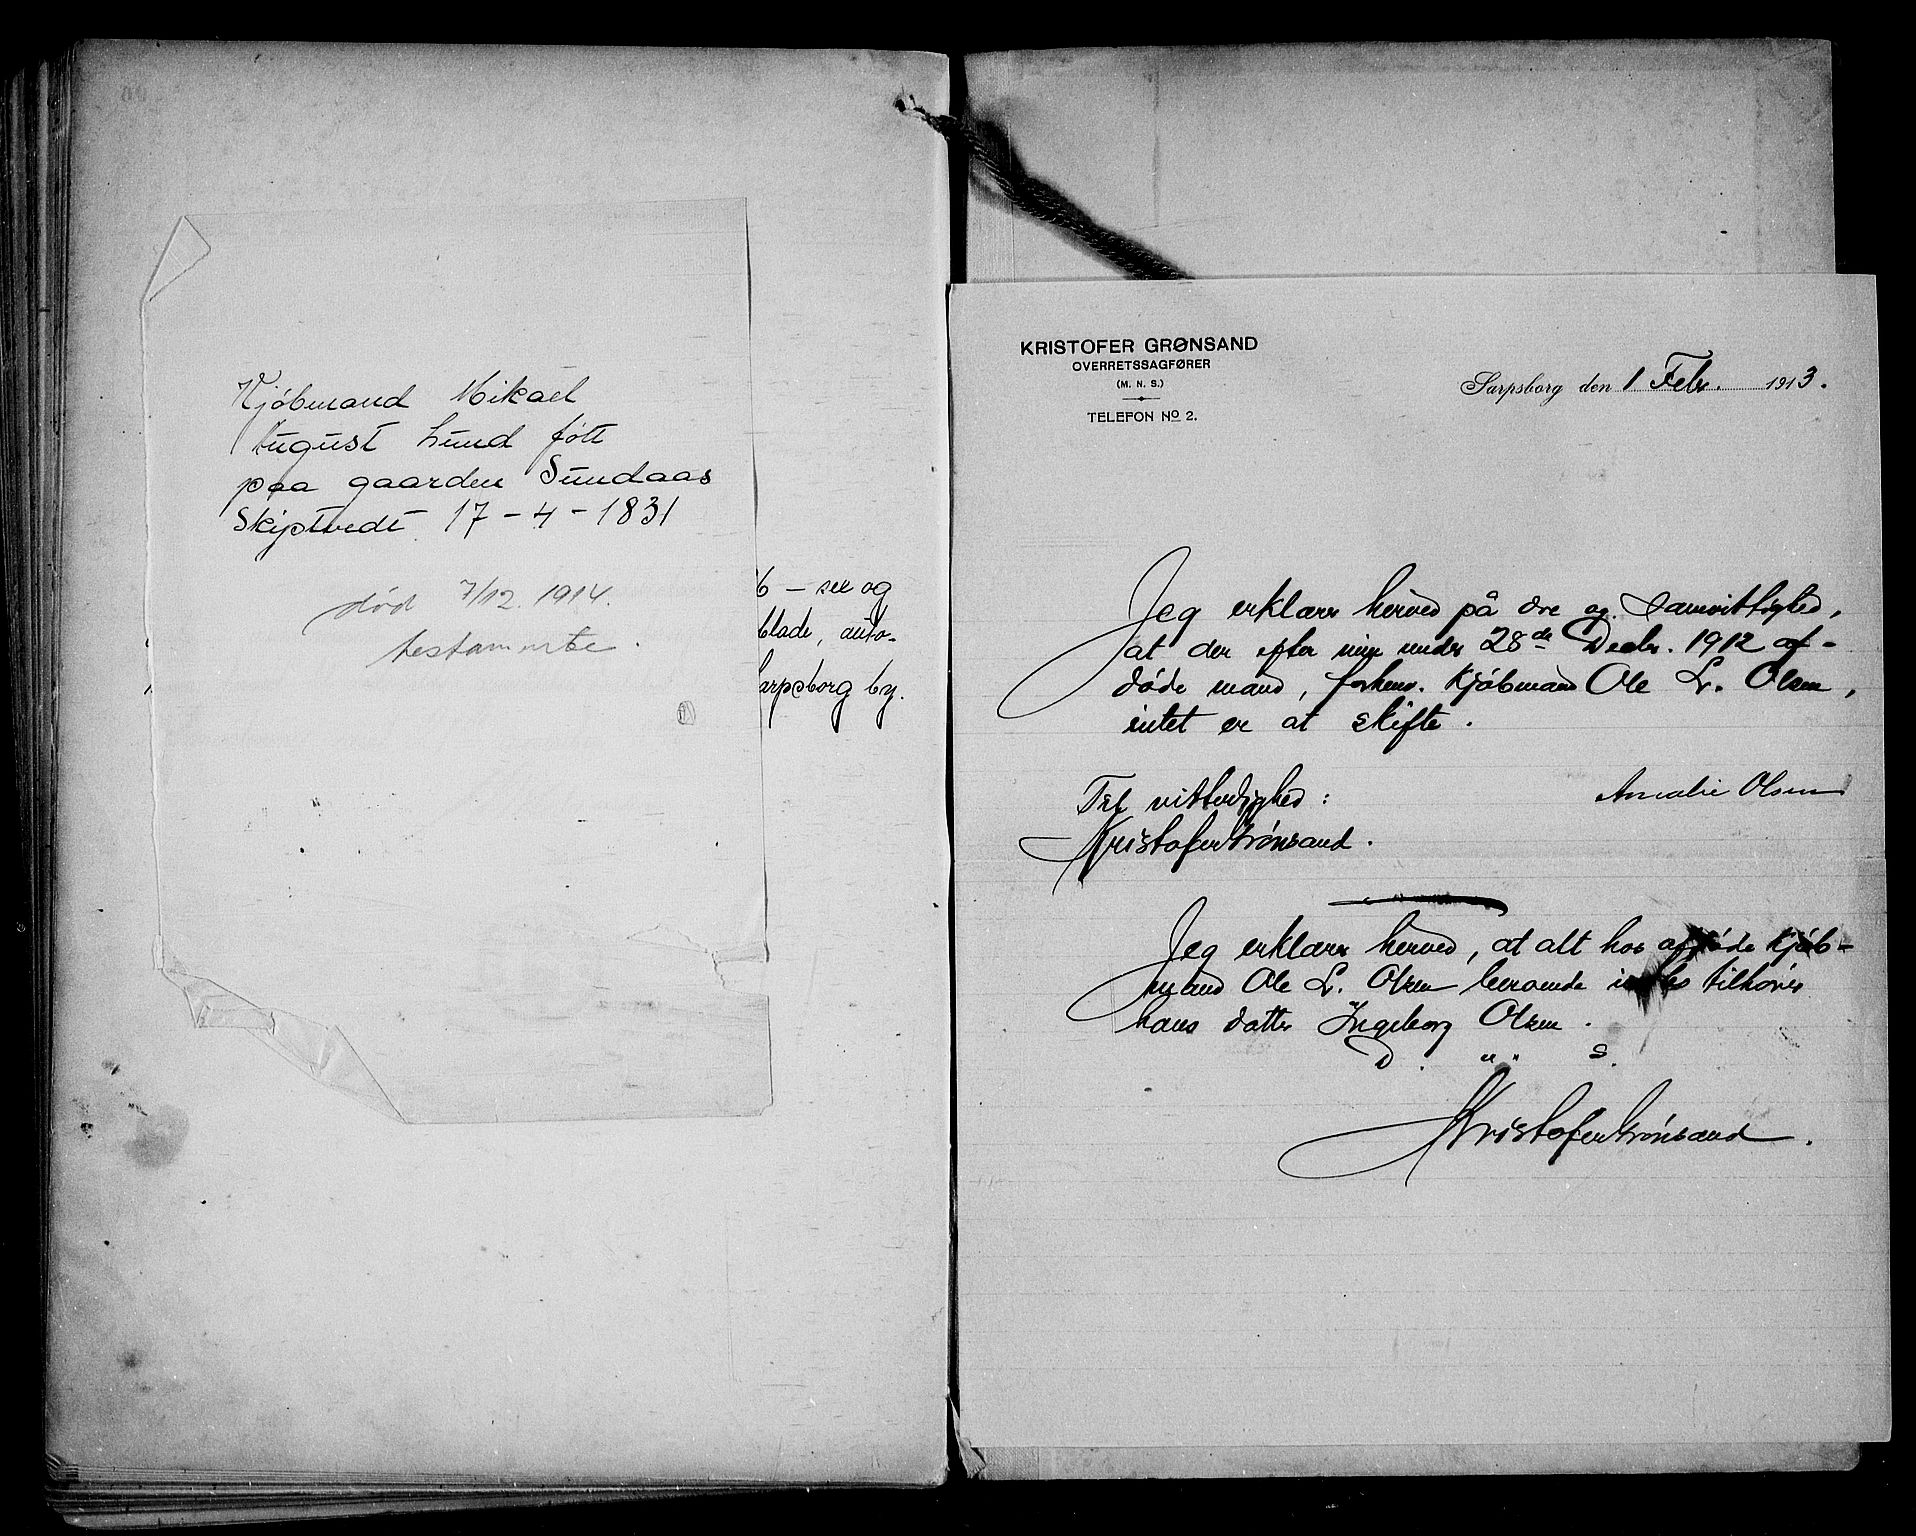 Kjöbmand Mikael
August Lund föth
paa gaarden Sundaas
Skiptvedt 17-4-1831
død 7/12. 1914.
testamente.
6 – sex og
blade, auto-
arpsborg by.
KRISTOFER GRØNSAND
OVERRETSSAGFØRER
(M. N. S.)
TELEFON No 2.
Sarpsborg den 1 Febr. 1913.
Jeg erklærer herved på ære og samvittighed,
at der efter min under 28de Decbr. 1912 af-
døde mand, forhenv. kjøbmand Ole L. Olsen,
intet er at skifte.
Amalie Olsen
Til vitterlighed:
Kristofer Grønsand.
Jeg erklærer herved, at alt hos afdøde kjøb-
mand Ole L. Olsen beroende indbo tilhører
hans datter Ingeborg Olsen.
D. " " S.
Kristofer Grønsand.